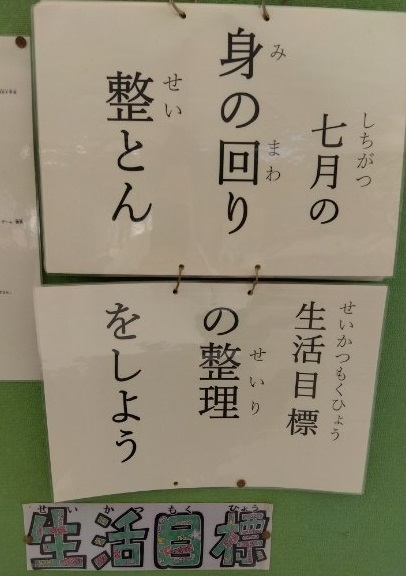 しちがつ せいかつもくひょう
七月の生活目標
み まわ せいり
身の回りの整理
せい
整とんをしよう
せい かつ もく ひょう
生活目標